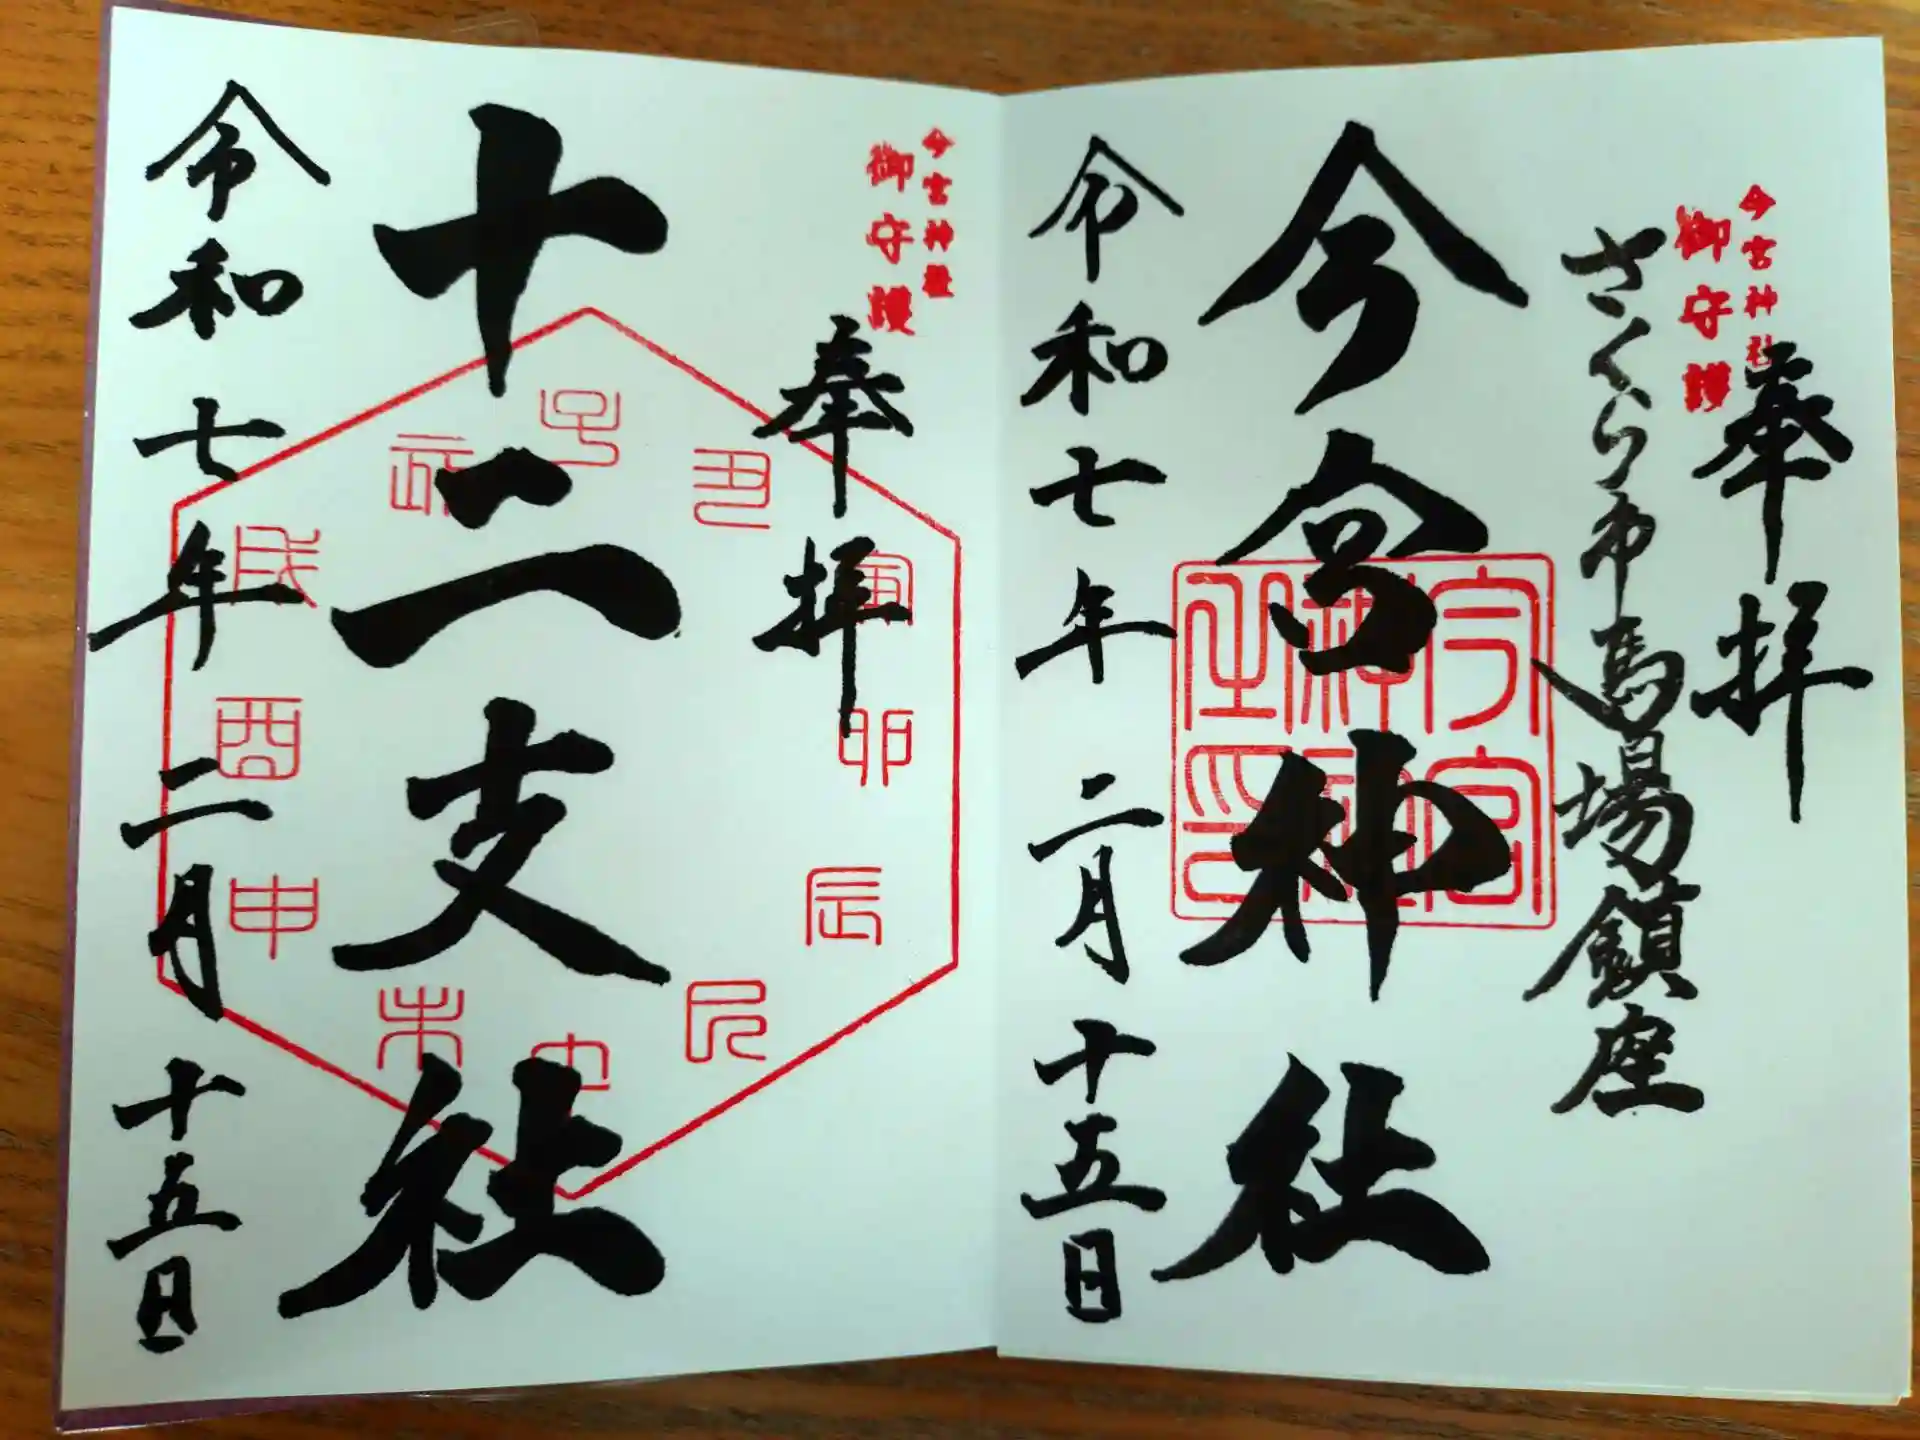 今宮神社
御守護
奉拝
さくら市馬場鎮座
今宮神社
今宮
神社
之印
令和七年二月十五日
今宮神社
御守護
奉拝
十二支社
子
丑
寅
卯
辰
巳
午
未
申
酉
戌
亥
令和七年二月十五日